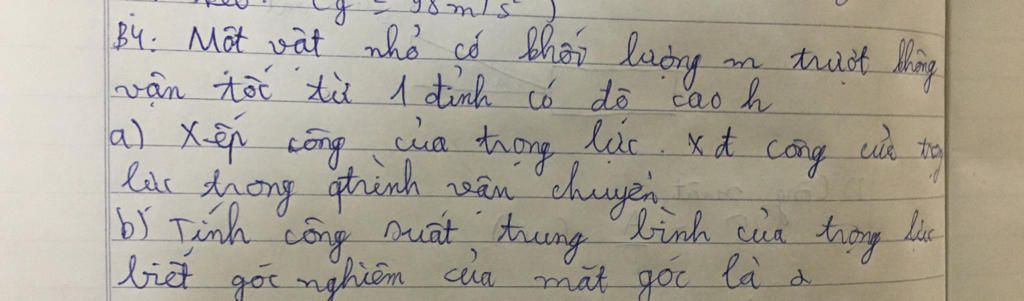 (g = 98m/s²)
B4: Một vật nhỏ có khối lượng m trượt không
vận tốc từ 1 đỉnh có độ cao h
a) X-ếp công của trọng lực. Xđ công của trọng
lực trong qtrình vân chuyển.
b) Tính công suất trung bình của trọng lực
biết góc nghiêm của mặt góc là α